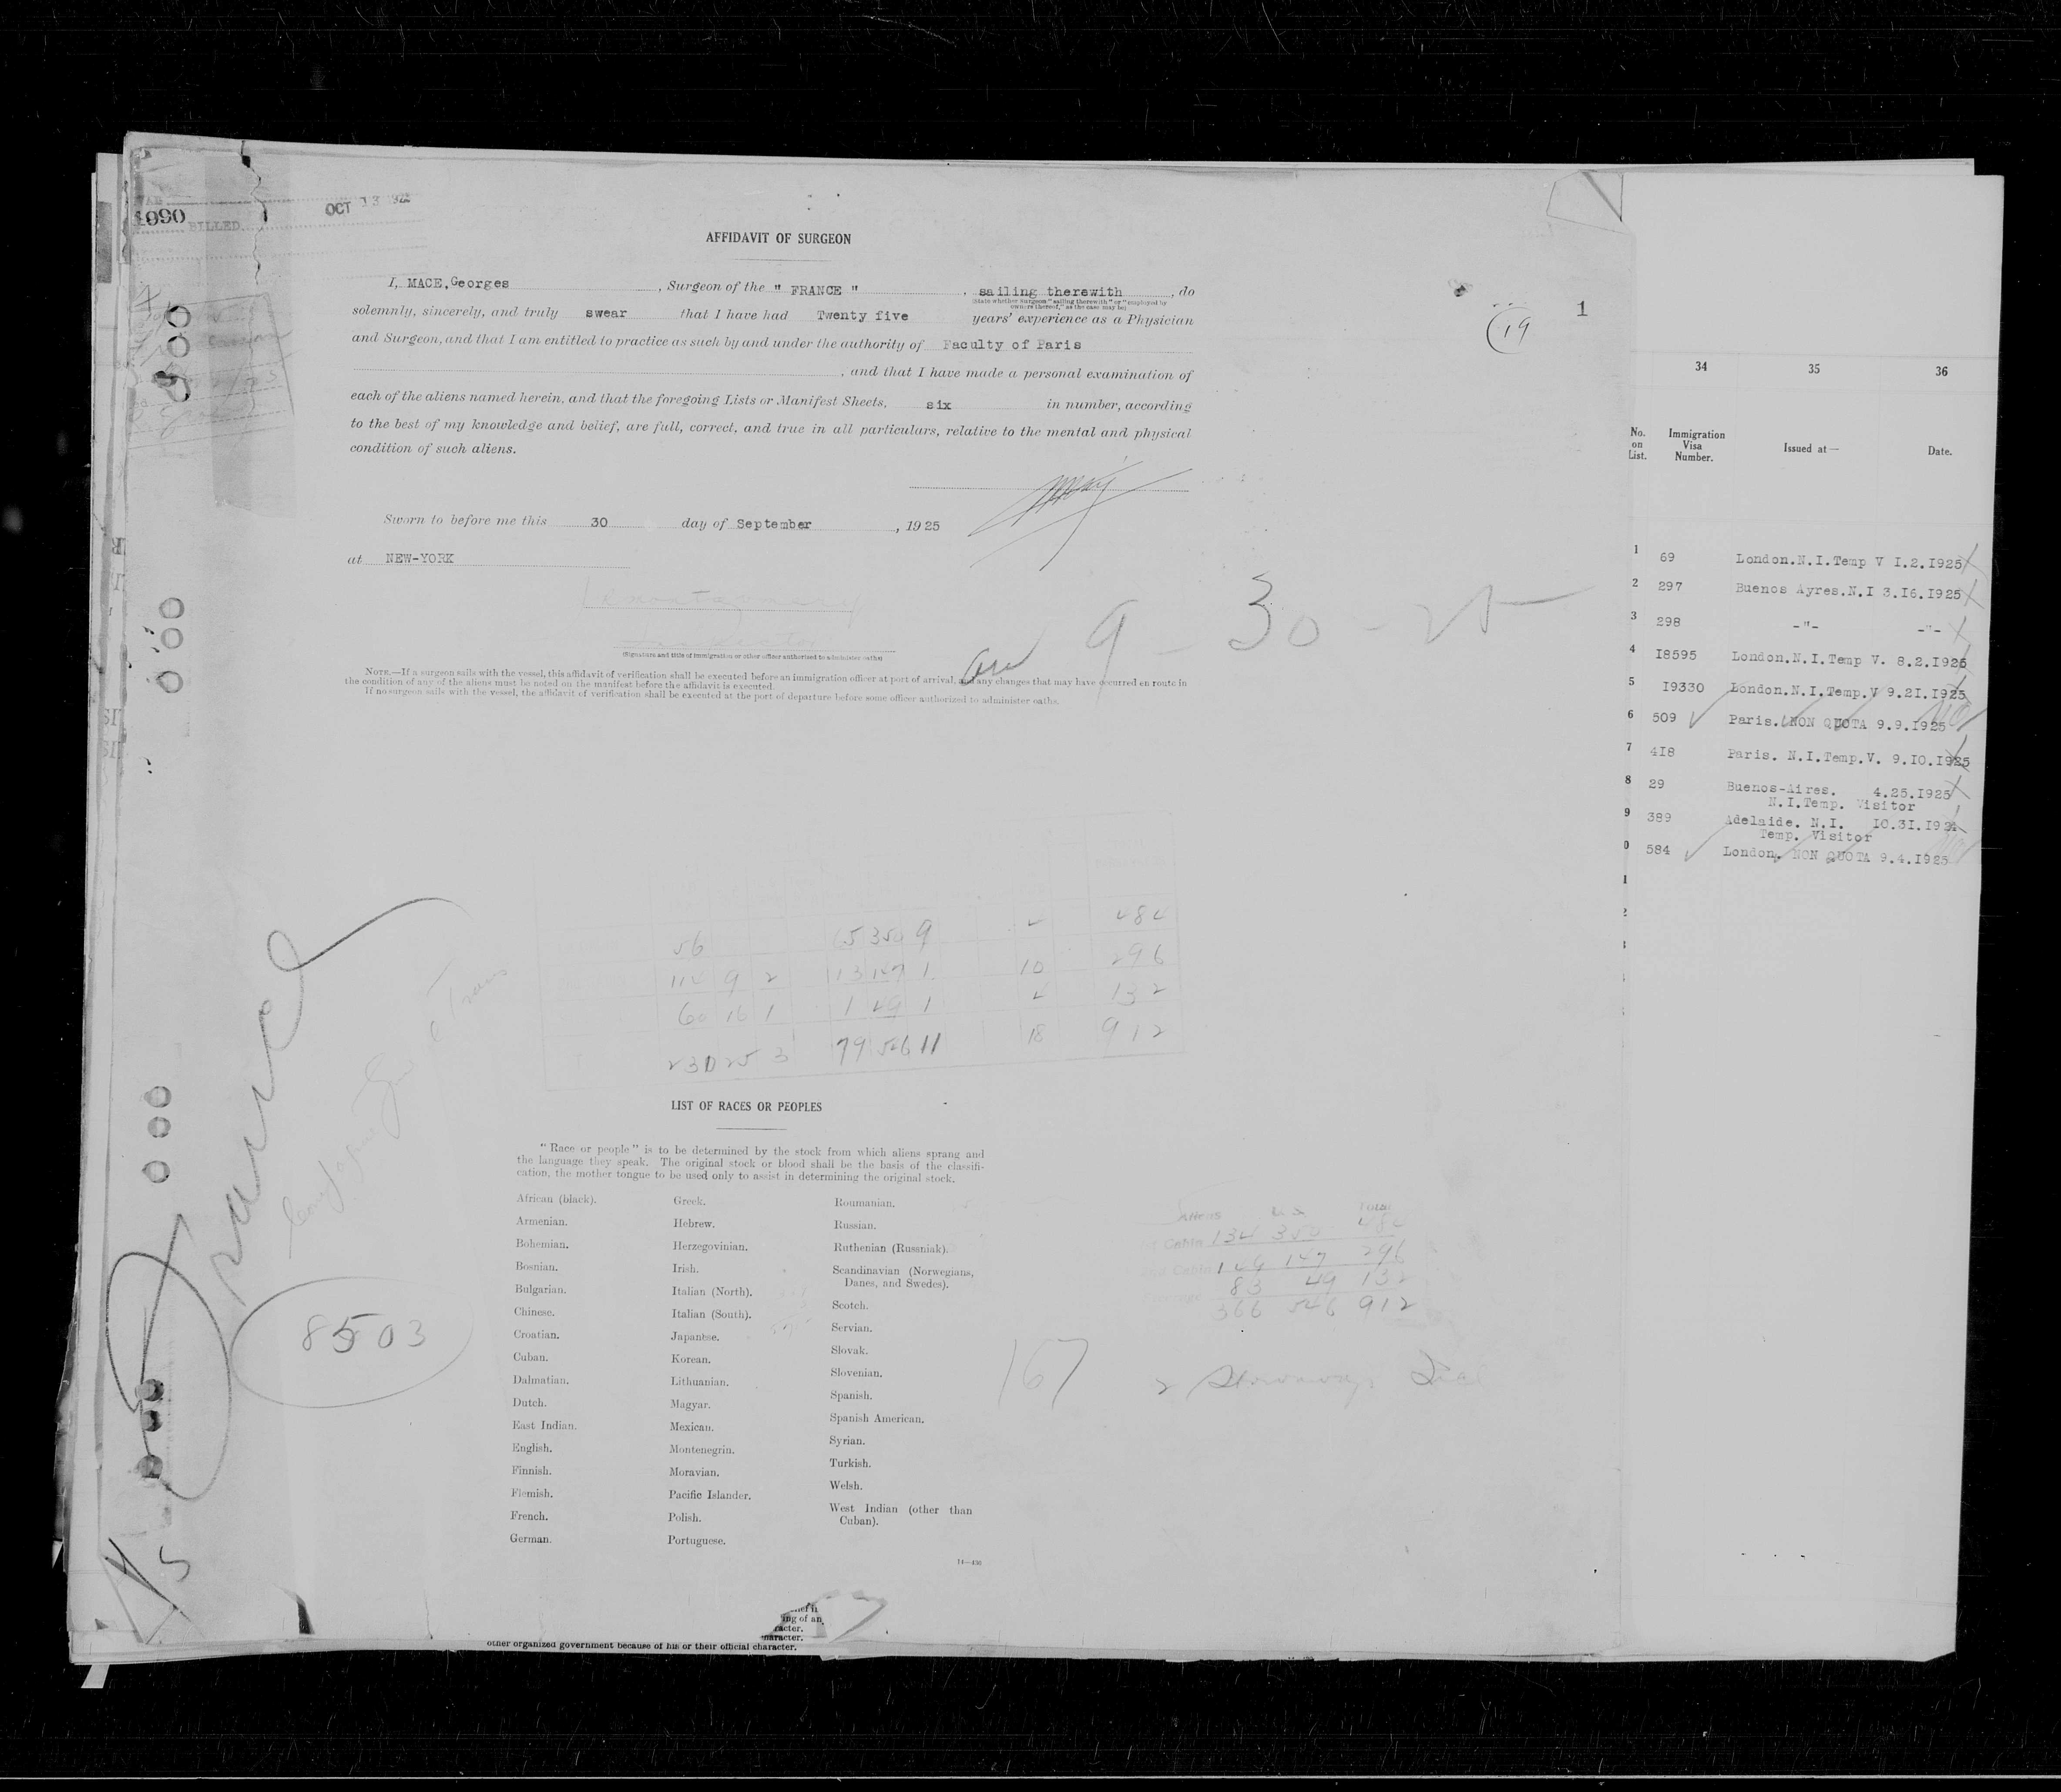 1090
BILLED
OCT 13
AFFIDAVIT OF SURGEON
I, MACE, Georges, Surgeon of the " FRANCE ", sailing therewith, do
(State whether Surgeon "sailing therewith" or "employed by
owners thereof," as the case may be)
solemnly, sincerely, and truly swear that I have had Twenty five years' experience as a Physician
and Surgeon, and that I am entitled to practice as such by and under the authority of Faculty of Paris
, and that I have made a personal examination of
each of the aliens named herein, and that the foregoing Lists or Manifest Sheets, six in number, according
to the best of my knowledge and belief, are full, correct, and true in all particulars, relative to the mental and physical
condition of such aliens.
Sworn to before me this 30 day of September, 1925
at NEW-YORK
(Signature and title of immigration or other officer authorized to administer oaths)
9 - 30 - 25
NOTE.—If a surgeon sails with the vessel, this affidavit of verification shall be executed before an immigration officer at port of arrival, and any changes that may have occurred en route in
the condition of any of the aliens must be noted on the manifest before the affidavit is executed.
If no surgeon sails with the vessel, the affidavit of verification shall be executed at the port of departure before some officer authorized to administer oaths.
19
1
34 35 36
No. on List. Immigration Visa Number. Issued at— Date.
1 69 London.N.I.Temp V I.2.I925
2 297 Buenos Ayres.N.I 3.I6.I925
3 298 -"- -"-
4 I8595 London.N.I.Temp V. 8.2.I925
5 I9330 London.N.I.Temp.V 9.2I.I925
6 509 Paris. NON QUOTA 9.9.I925
7 4I8 Paris. N.I.Temp.V. 9.IO.I925
8 29 Buenos-Aires. 4.25.I925
N.I.Temp. Visitor
9 389 Adelaide. N.I. IO.3I.I924
Temp. Visitor
0 584 London. NON QUOTA 9.4.I925
1
2
3
56 65 350 9 484
114 9 2 13 147 1 10 296
60 16 1 1 49 1 4 132
230 25 3 79 546 11 18 912
France
8503
LIST OF RACES OR PEOPLES
"Race or people" is to be determined by the stock from which aliens sprang and
the language they speak. The original stock or blood shall be the basis of the classifi-
cation, the mother tongue to be used only to assist in determining the original stock.
African (black).
Armenian.
Bohemian.
Bosnian.
Bulgarian.
Chinese.
Croatian.
Cuban.
Dalmatian.
Dutch.
East Indian.
English.
Finnish.
Flemish.
French.
German.
Greek.
Hebrew.
Herzegovinian.
Irish.
Italian (North).
Italian (South).
Japanese.
Korean.
Lithuanian.
Magyar.
Mexican.
Montenegrin.
Moravian.
Pacific Islander.
Polish.
Portuguese.
Roumanian.
Russian.
Ruthenian (Russniak).
Scandinavian (Norwegians,
Danes, and Swedes).
Scotch.
Servian.
Slovak.
Slovenian.
Spanish.
Spanish American.
Syrian.
Turkish.
Welsh.
West Indian (other than
Cuban).
14—436
Aliens Total
Cabin 134 350 484
Cabin 149 147 296
83 49 132
366 546 912
167
2 Stowaways
ing of an
racter.
naracter.
other organized government because of his or their official character.